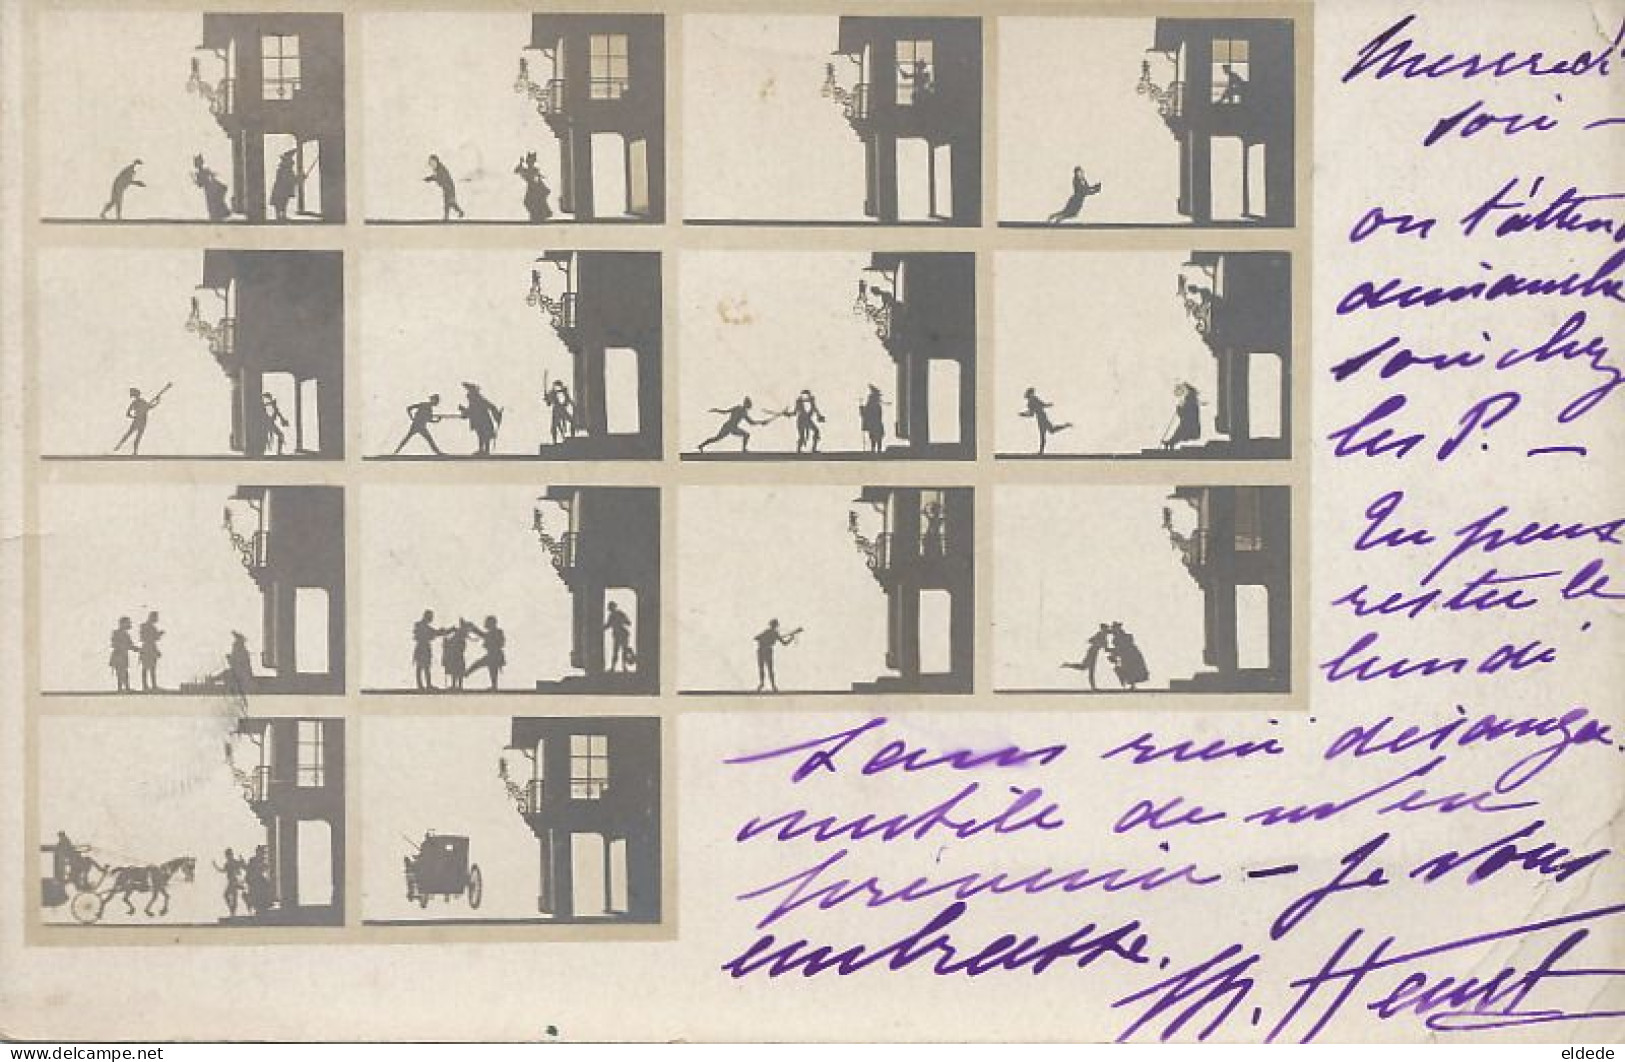 Mercredi
soir –
on t'attend
dimanche
soir chez
les P. –
Tu peux
rester le
lundi
sans rien déranger.
inutile de m'en
prévenir – Je vous
embrasse.
delcampe.net
eldede